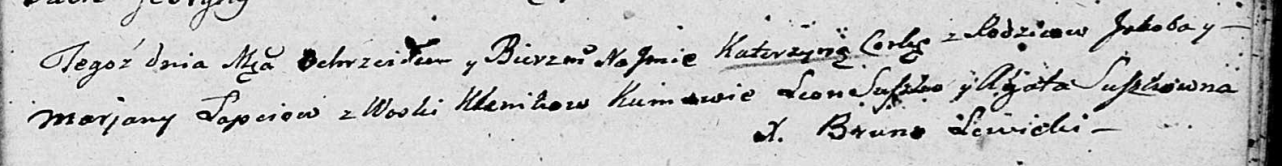 Tegoż dnia Mca Ochrzciłem y Bierzm: Na Jmie Katerzynę Corkę z Rodzicow Jakoba y
Marjany Łapciow z Woski Klenikow Kumowie Leon Suszko y Agata Suszkowna
X. Bruno Lewicki